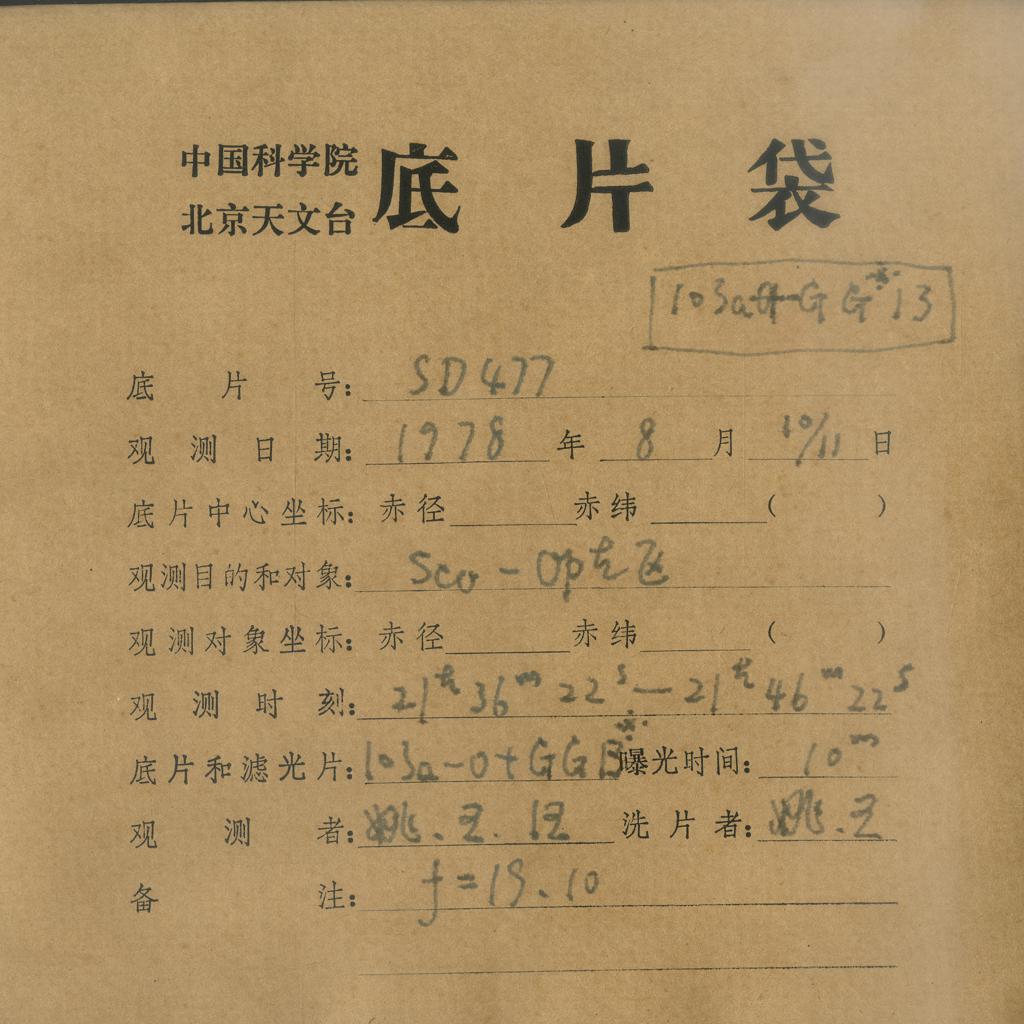 中国科学院
北京天文台
底片袋
103a-GG※13
底片号: SD477
观测日期: 1978年8月10/11日
底片中心坐标: 赤径 赤纬 ( )
观测目的和对象: Sco-OP
观测对象坐标: 赤径 赤纬 ( )
观测时刻: 21 36m 22s — 21 46m 22s
底片和滤光片: 103a-O+GG13※ 曝光时间: 10m
观测者: 姚.王. 洗片者: 姚.王
备注: f=19.10